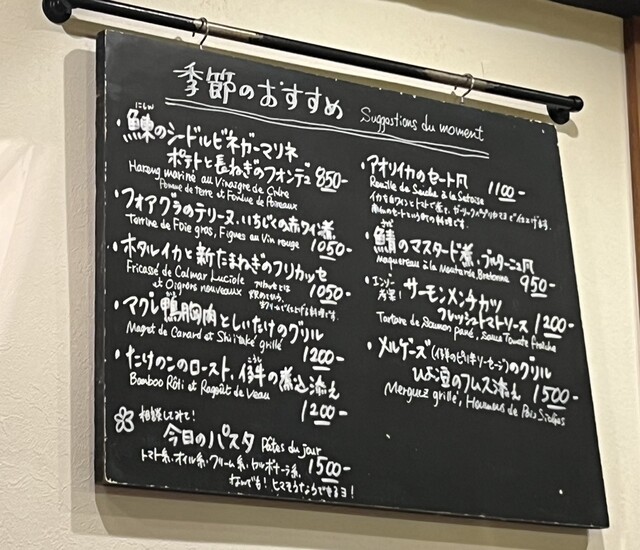 季節のおすすめ Suggestions du moment
にしん
・鰊のシードルビネガーマリネ
ポテトと長ねぎのフォンデュ 850-
Hareng mariné au Vinaigre de Cidre
Pomme de terre et Fondue de Poireaux
・フォアグラのテリーヌ、いちじくの赤ワイン煮
Terrine de Foie gras, Figues au Vin rouge 1050-
・ホタルイカと新たまねぎのフリカッセ
Fricassé de Calmar Luciole
et Oignons nouveaux 1050-
・マグレ鴨胸肉としいたけのグリル
Magret de Canard et Shiitaké grillé
1200-
・たけのこのロースト、仔牛の煮込添え
Bamboo Rôti et Ragoût de Veau
1200-
相談してみて!
今日のパスタ Pâtes du jour
トマト系、オイル系、クリーム系、カルボナーラ系、 1500-
なんでも! ヒマそうならできるヨ!
・アオリイカのセート風 1100-
Rouille de Seiche à la Sétoise
さば
・鯖のマスタード煮、ブルターニュ風
Maquereau à la Moutarde, Bretonne 950-
・サーモンメンチカツ
フレッシュトマトソース 1200-
Tartare de Saumon pané, Sauce Tomate fraîche
・メルゲーズ(仔羊のピリ辛ソーセージ)のグリル
ひよこ豆のフムス添え 1500-
Merguez grillé, Houmous de Pois Chiches